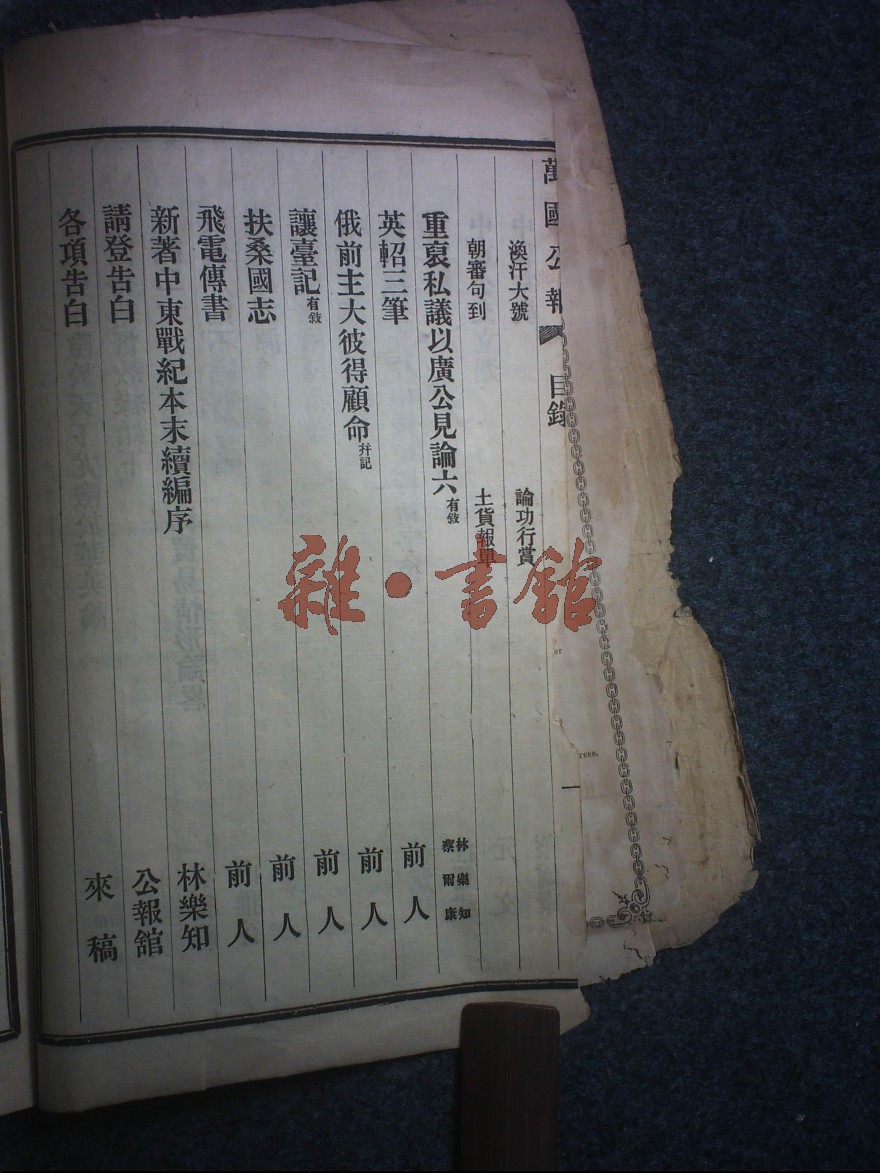 萬國公報 目錄
渙汗大號 論功行賞
朝審句到 土貨報單
重裒私議以廣公見論六 有敘 林樂知 蔡爾康
英軺三筆 前人
俄前主大彼得顧命 幷記 前人
讓臺記 有敘 前人
扶桑國志 前人
飛電傳書 前人
新著中東戰紀本末續編序 林樂知
請登告白 公報舘
各項告白 來稿
一
雜·書館